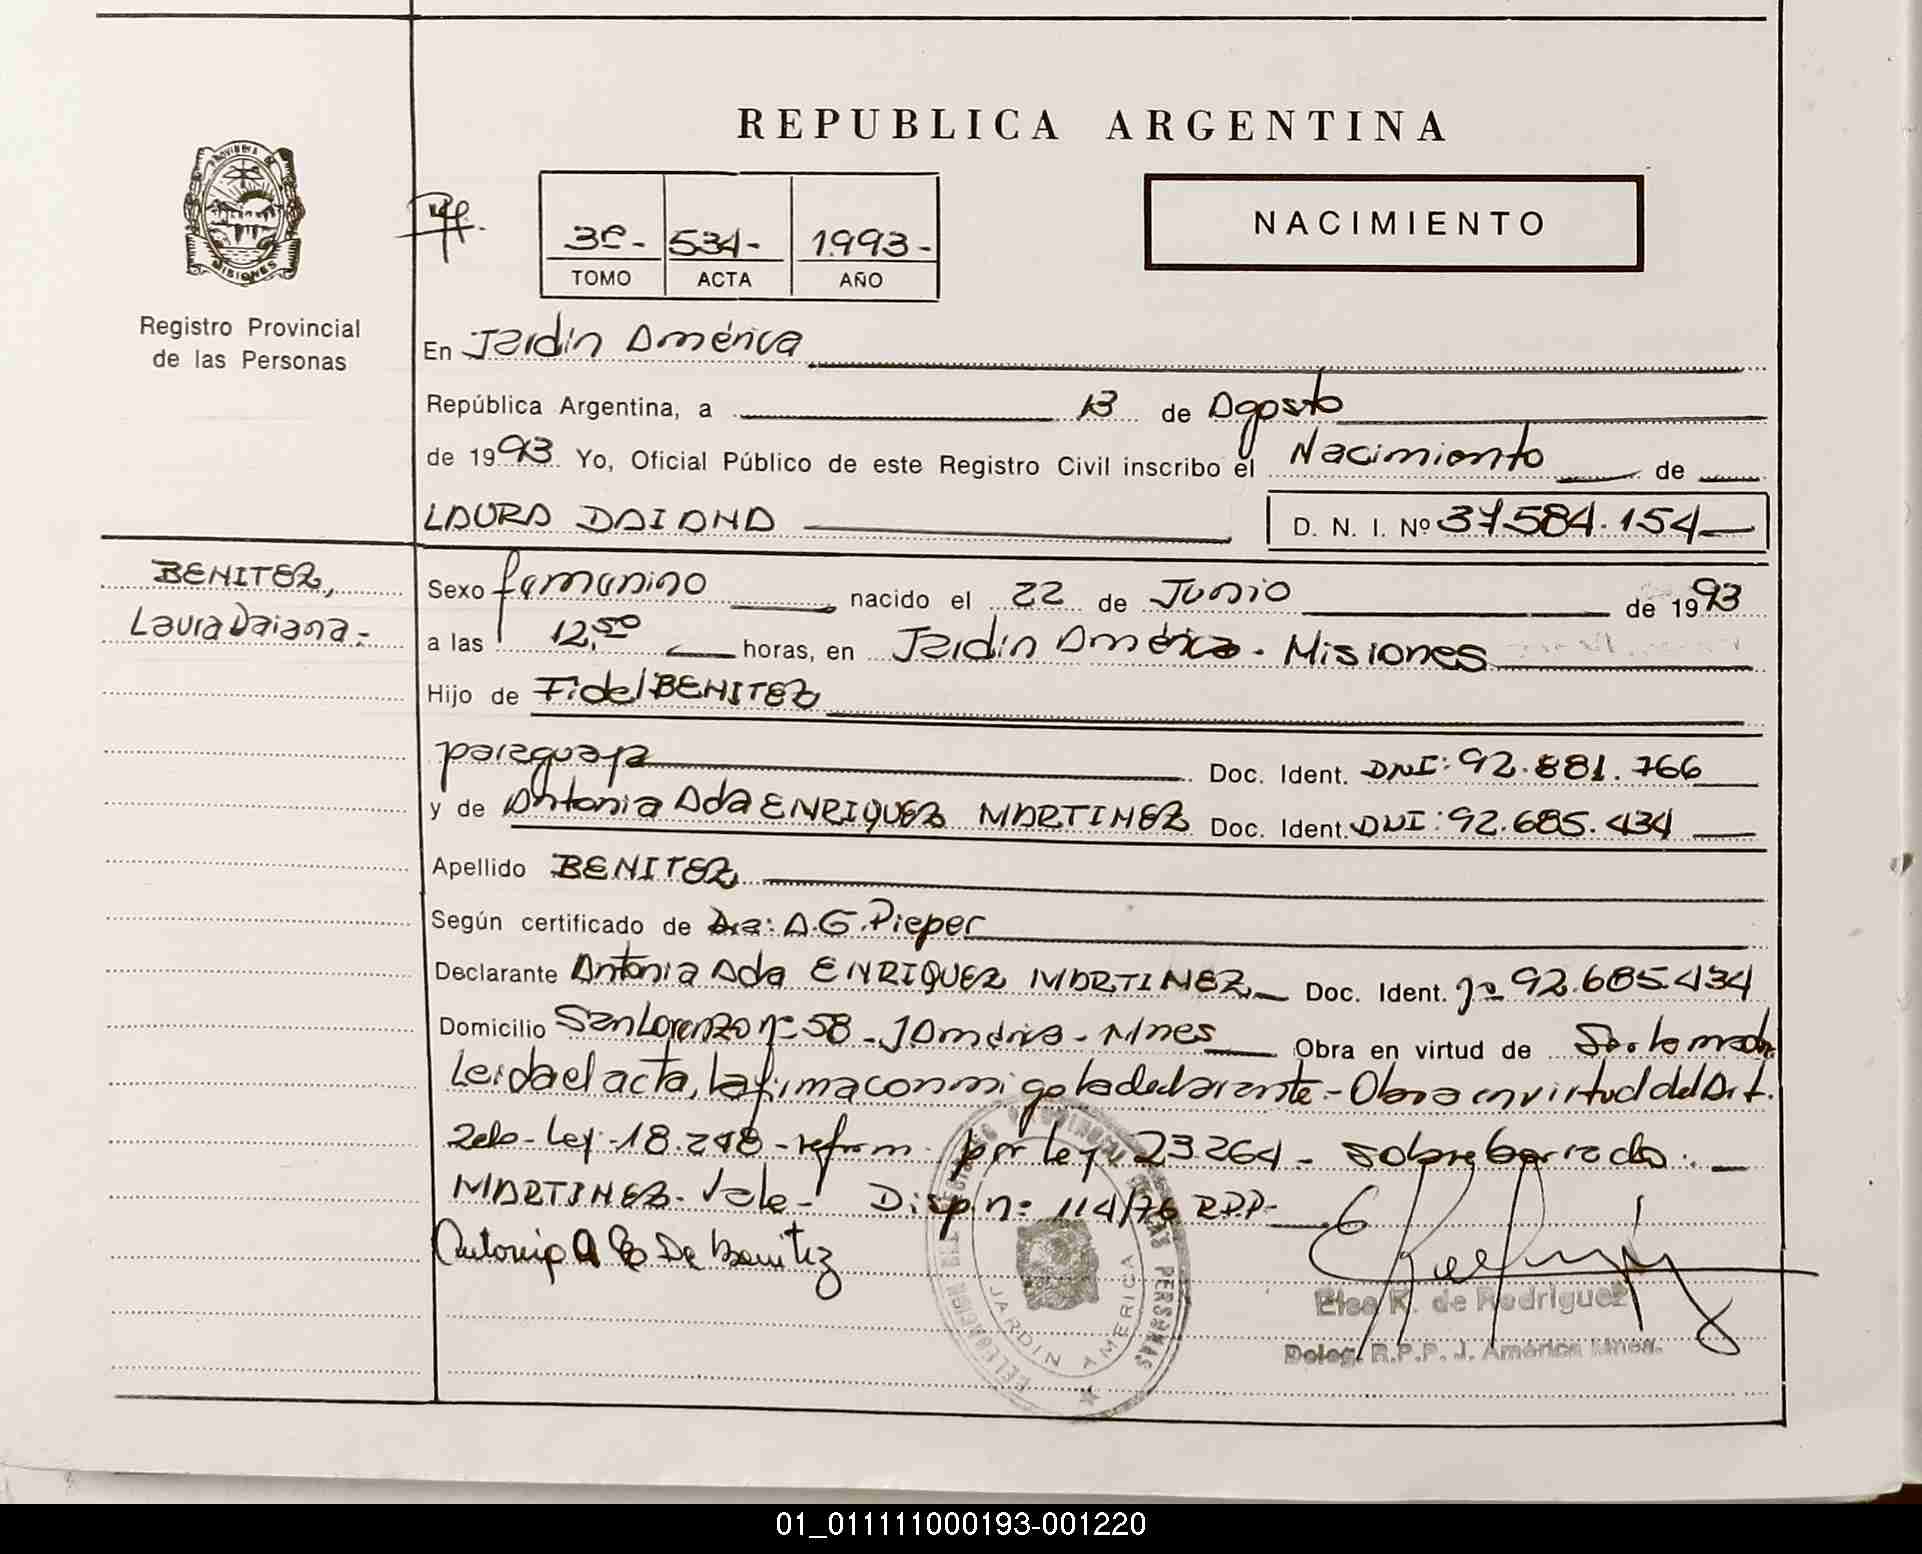 REPUBLICA ARGENTINA
PROVINCIA DE
MISIONES
Registro Provincial
de las Personas
3º- 534- 1.993-
TOMO ACTA AÑO
NACIMIENTO
En Jardín América
República Argentina, a 13 de Agosto
de 1993 Yo, Oficial Público de este Registro Civil inscribo el Nacimiento de
LAURA DAIANA D. N. I. Nº 37.584.154
BENITEZ,
Laura Daiana.-
Sexo femenino nacido el 22 de Junio de 1993
a las 12,50 horas, en Jardín América. Misiones
Hijo de Fidel BENITEZ
paraguaya Doc. Ident. DNI: 92.881.766
y de Antonia Ada ENRIQUEZ MARTINEZ Doc. Ident. DNI: 92.685.434
Apellido BENITEZ
Según certificado de Dra: A.G. Pieper
Declarante Antonia Ada ENRIQUEZ MARTINEZ Doc. Ident. nº 92.685.434
Domicilio San Lorenzo nº 58 - J América - Mnes Obra en virtud de Ser la madre
Leída el acta, la firma conmigo la declarante - Obra en virtud del Art.
2do - Ley - 18.248 - reform por Ley 23264 - sobreborrado:
MARTINEZ - Vale - Disp. nº 114/76 R.P.P-
Antonia A de Benitez
DELEGACION DEL REGISTRO PROVINCIAL DE LAS PERSONAS
JARDIN AMERICA
Elsa K. de Rodriguez
Deleg. R.P.P. J. América Mnes.
01_011111000193-001220